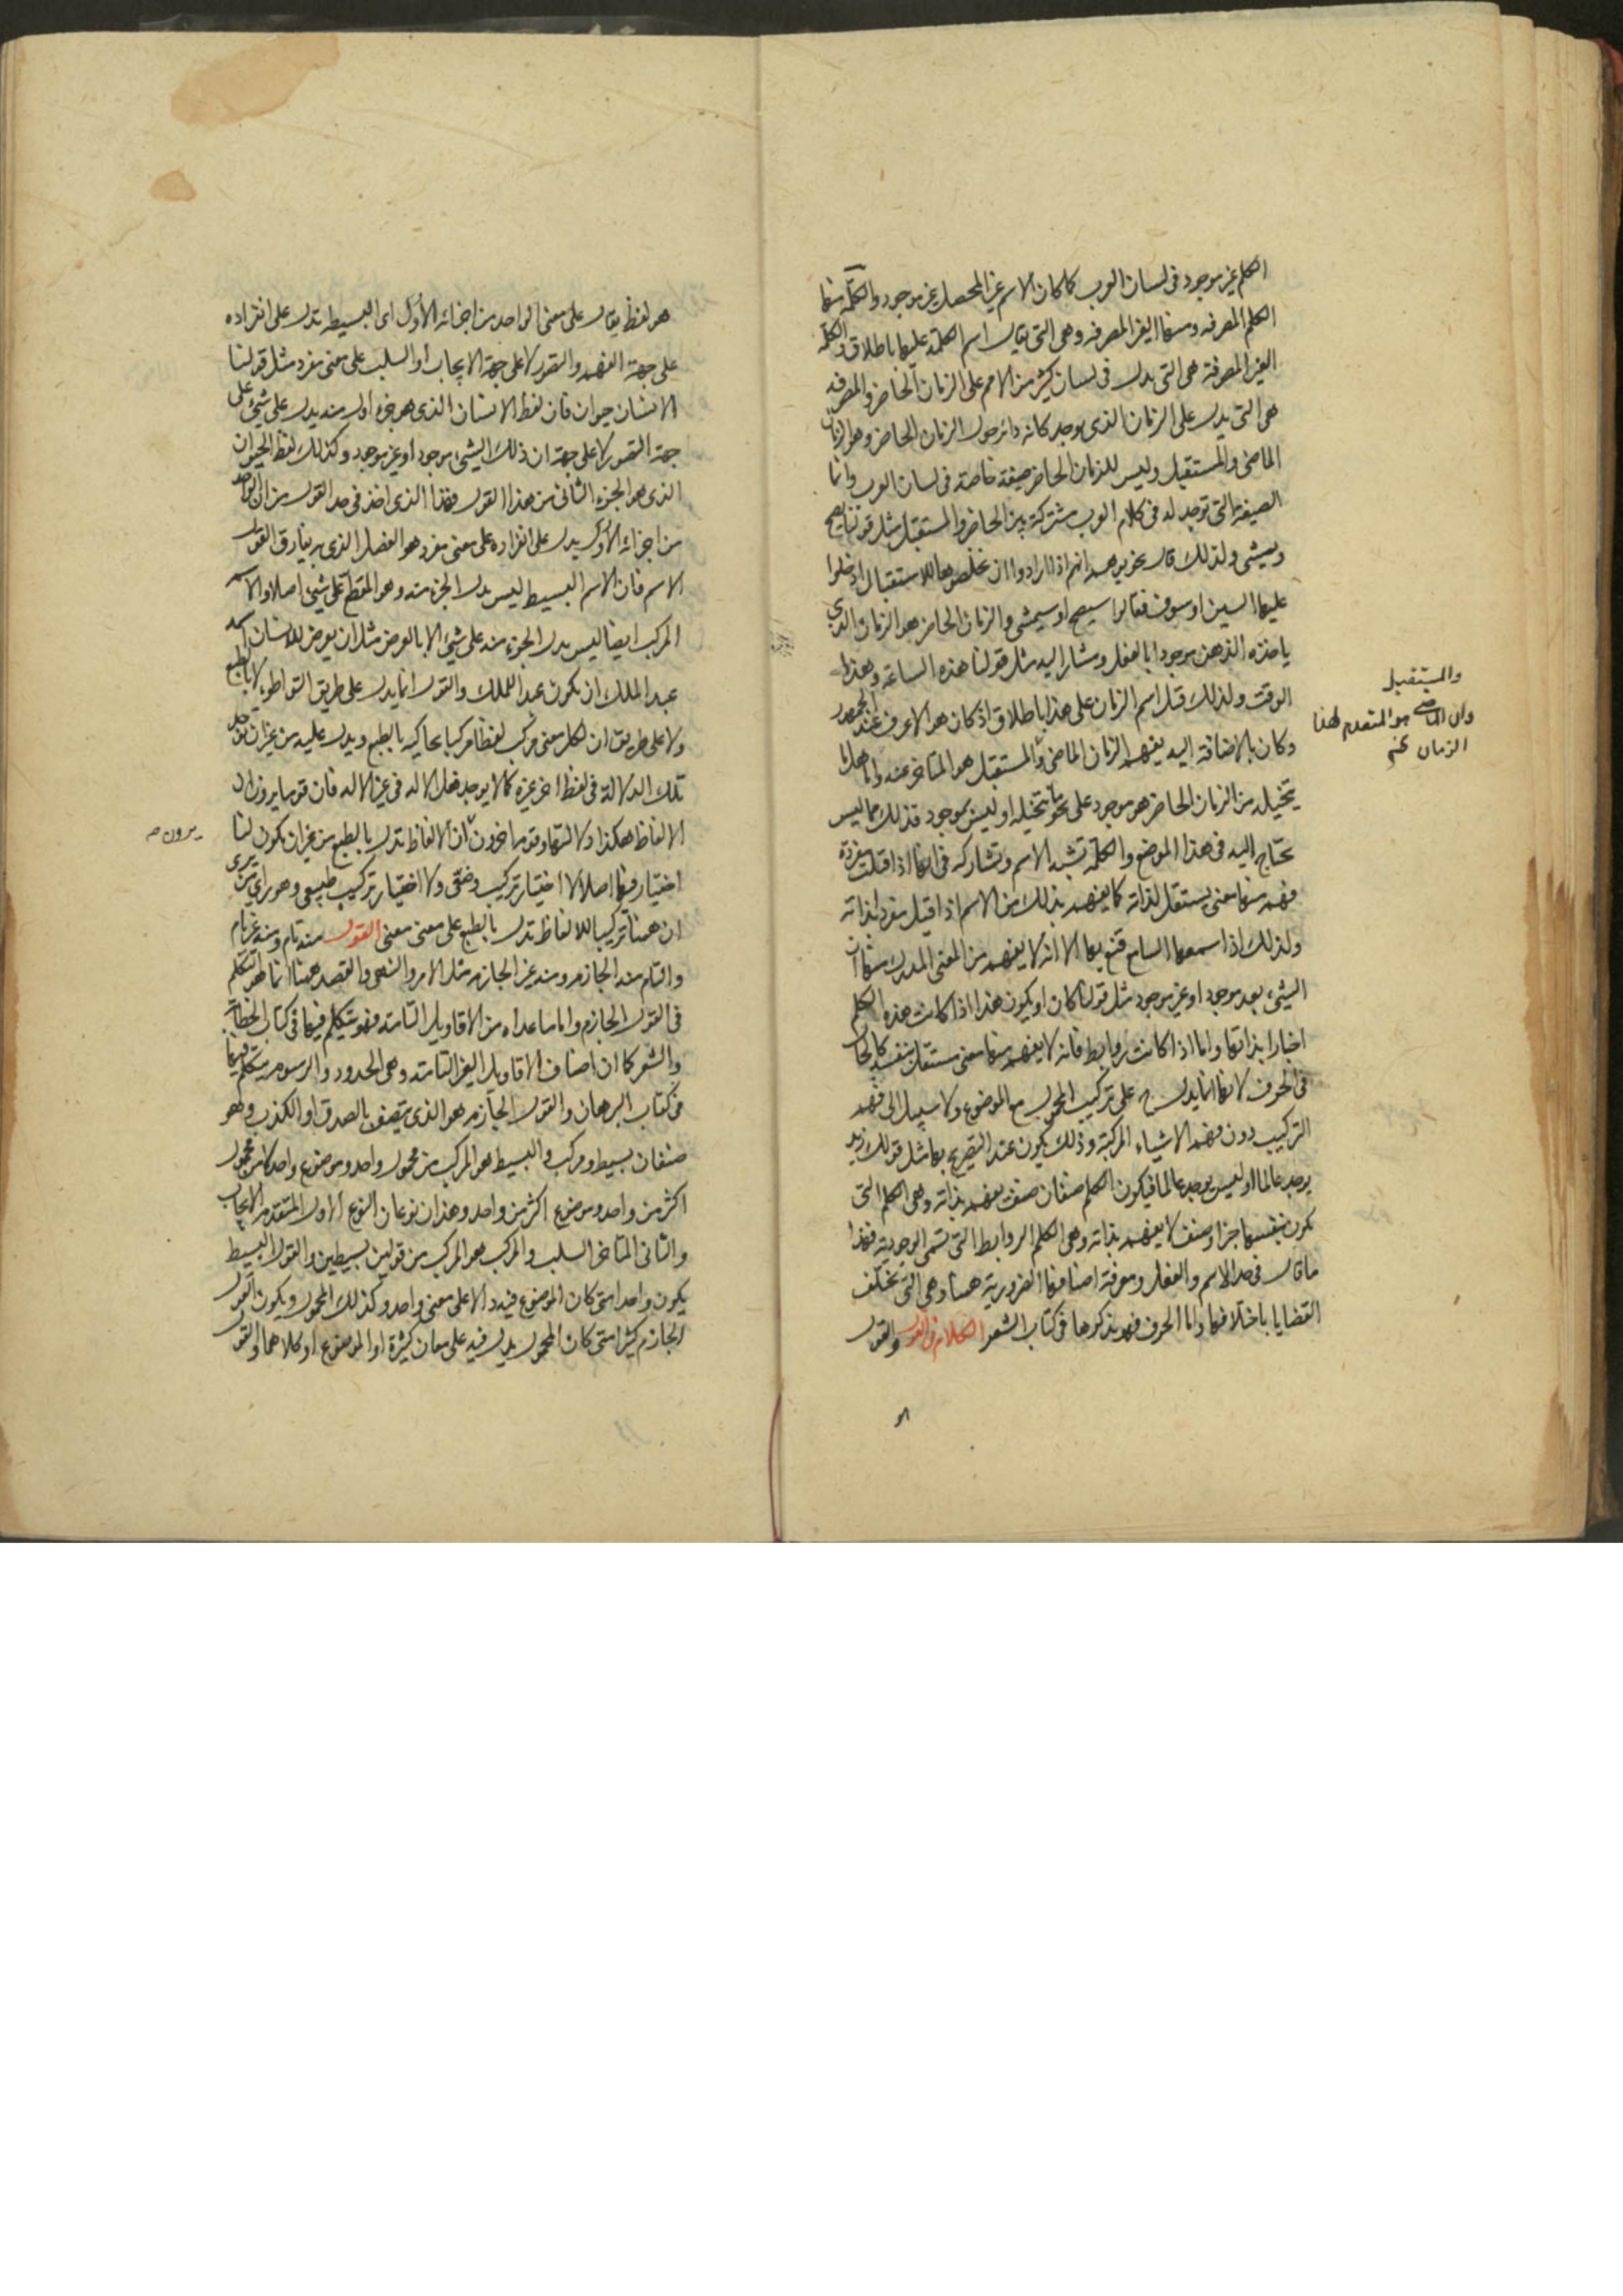 الكلم غير موجود في لسان العرب كما كان الاسم غير المحصل غير موجود والكلمة منها
الكلم المصرفه ومنها الغير المصرفه وهى التى يقال اسم الكلمة عليها باطلاق والكلمة
الغير المصرفة هى التى يدل فى لسان كثير من الامم على الزمان الحاضر والمصرفه
هى التى يدل على الزمان الذى يوجد كانه دائر حول الزمان الحاضر وهو الزمان
الماضى والمستقبل وليس للزمان الحاضر صيغة خاصة فى لسان العرب وانما
الصيغة التى توجد له فى كلام العرب مشتركة بين الحاضر والمستقبل مثل قولنا يصح
ويمشى ولذلك قال نحويوهم انهم اذا ارادوا ان يخلصوها للاستقبال ادخلوا
عليها السين او سوف فقالوا سيصح او سيمشى والزمان الحاضر هو الزمان الذى
ياخذه الذهن موجودا بالفعل ومشارا اليه مثل قولنا هذه الساعة وهذا
الوقت ولذلك قيل اسم الزمان على هذا باطلاق اذ كان هو الاعرف عند الجمهور
وكان بالاضافة اليه يفهم الزمان الماضى والمستقبل هو المتاخر عنه واما هل ما
يتخيله من الزمان الحاضر هو موجود على نحو ما يتخيله او ليس بموجود فذلك مما ليس
يحتاج اليه فى هذا الموضع والكلمة تشبه الاسم وتشاركه فى انها اذا قيلت مفردة
فهم منها معنى يستقل لذاته كما يفهم بذلك من الاسم اذا قيل مفردا بذاته
ولذلك اذا سمعها السامع قنع بها الا انه لا يفهم من المعنى المدرك منها ان
الشيء بعد موجود او غير موجود مثل قولنا كان او يكون هذا اذا كانت هذه الكلم
اخبارا بذاتها واما اذا كانت روابط فانه لا يفهم منها معنى مستقل بنفسه كالحال
فى الحرف لانها انما يدل على تركيب المحمول مع الموضوع ولا سبيل الى فهم
التركيب دون فهم الاشياء المركبة وذلك يكون عند التصريح بها مثل قولك زيد
يوجد عالما او ليس يوجد عالما فيكون الكلم صنفان صنف يفهم بذاته وهى الكلم التى
تكون بنفسها جزءا وصنف لا يفهم بذاته وهى الكلم الروابط التى تسمى الوجودية فهذا
ما قال فى حد الاسم والفعل ومعرفة اصنافها الضرورية ههنا وهى التى تختلف
القضايا باختلافها واما الحرف فهو يذكرها فى كتاب الشعر الكلام فى القول والقول
والمستقبل
وان الماضى هو المتقدم لهذا
الزمان
هو لفظ يقال على معنى الواحد من اجزائه الأول اى البسيطه تدل على انفراده
على جهة الفهم والتصور لا على جهة الايجاب أو السلب على معنى مفرد مثل قولنا
الانسان حيوان فان لفظ الانسان الذى هو جزء اول منه يدل على شيء على
جهة التصور لا على جهة ان ذلك الشيء موجود أو غير موجود وكذلك لفظ الحيوان
الذى هو الجزء الثانى من هذا القول فهذا الذى اخذ فى حد القول من ان الواحد
من اجزائه الاول يدل على انفراده على معنى مفرد هو الفصل الذى به يفارق القول
الاسم فان الاسم البسيط ليس يدل الجزء منه وهو المقطع على شيء اصلا والاسم
المركب ايضا ليس يدل الجزء منه على شيء الا بالعرض مثل ان يعرض للانسان اسمه
عبد الملك ان يكون عبدا للملك والقول انما يدل على طريق التواطوء لا بالطبع
ولا على طريق ان لكل معنى مركب لفظا مركبا يحاكيه بالطبع ويدل عليه من غير ان توجد
تلك الدلالة فى لفظ اخر غيره كما لا يوجد فعل الاله فى غير الاله فان قوما يرون ان
الالفاظ هكذا دلالتها وقوما اخرون ان الالفاظ تدل بالطبع من غير ان يكون لنا
اختيار فيها اصلا لا اختيار تركيب وضعى ولا اختيار تركيب طبيعى وهو راى من يرى
ان ههنا تركيبا للالفاظ تدل بالطبع على معنى معنى القول منه تام ومنه غير تام
والتام منه الجازم ومنه غير الجازم مثل الامر والنهى والقصد ههنا انما هو التكلم
فى القول الجازم واما ما عداه من الاقاويل التامته فهو يتكلم فيها فى كتاب الخطابة
والشعر كما ان اصناف الاقاويل الغير التامته وهى الحدود والرسوم يتكلم فيها
فى كتاب البرهان والقول الجازم هو الذى يتصف بالصدق او الكذب وهو
صنفان بسيط ومركب والبسيط هو المركب من محمول واحد وموضوع واحد لا من محمول
اكثر من واحد وموضوع اكثر من واحد وهذان نوعان النوع الاول المتقدم الايجاب
والثانى المتاخر السلب والمركب هو المركب من قولين بسيطين والقول البسيط
يكون واحدا متى كان الموضوع فيه دالا على معنى واحد وكذلك المحمول ويكون القول
الجازم كثيرا متى كان المحمول يدل فيه على معان كثيرة او الموضوع او كلاهما والقول
يرون